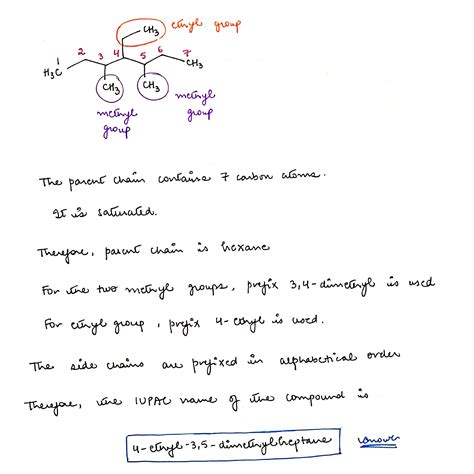 CH₃ ethyl group
1 2 3 4 5 6 7
H₃C CH₃
CH₃ CH₃
methyl group
methyl group
The parent chain contains 7 carbon atoms.
It is saturated.
Therefore, parent chain is hexane
For the two methyl groups, prefix 3,4-dimethyl is used
For ethyl group, prefix 4-ethyl is used.
The side chains are prefixed in alphabetical order
Therefore, the IUPAC name of the compound is
4-ethyl-3,5-dimethylheptane answer